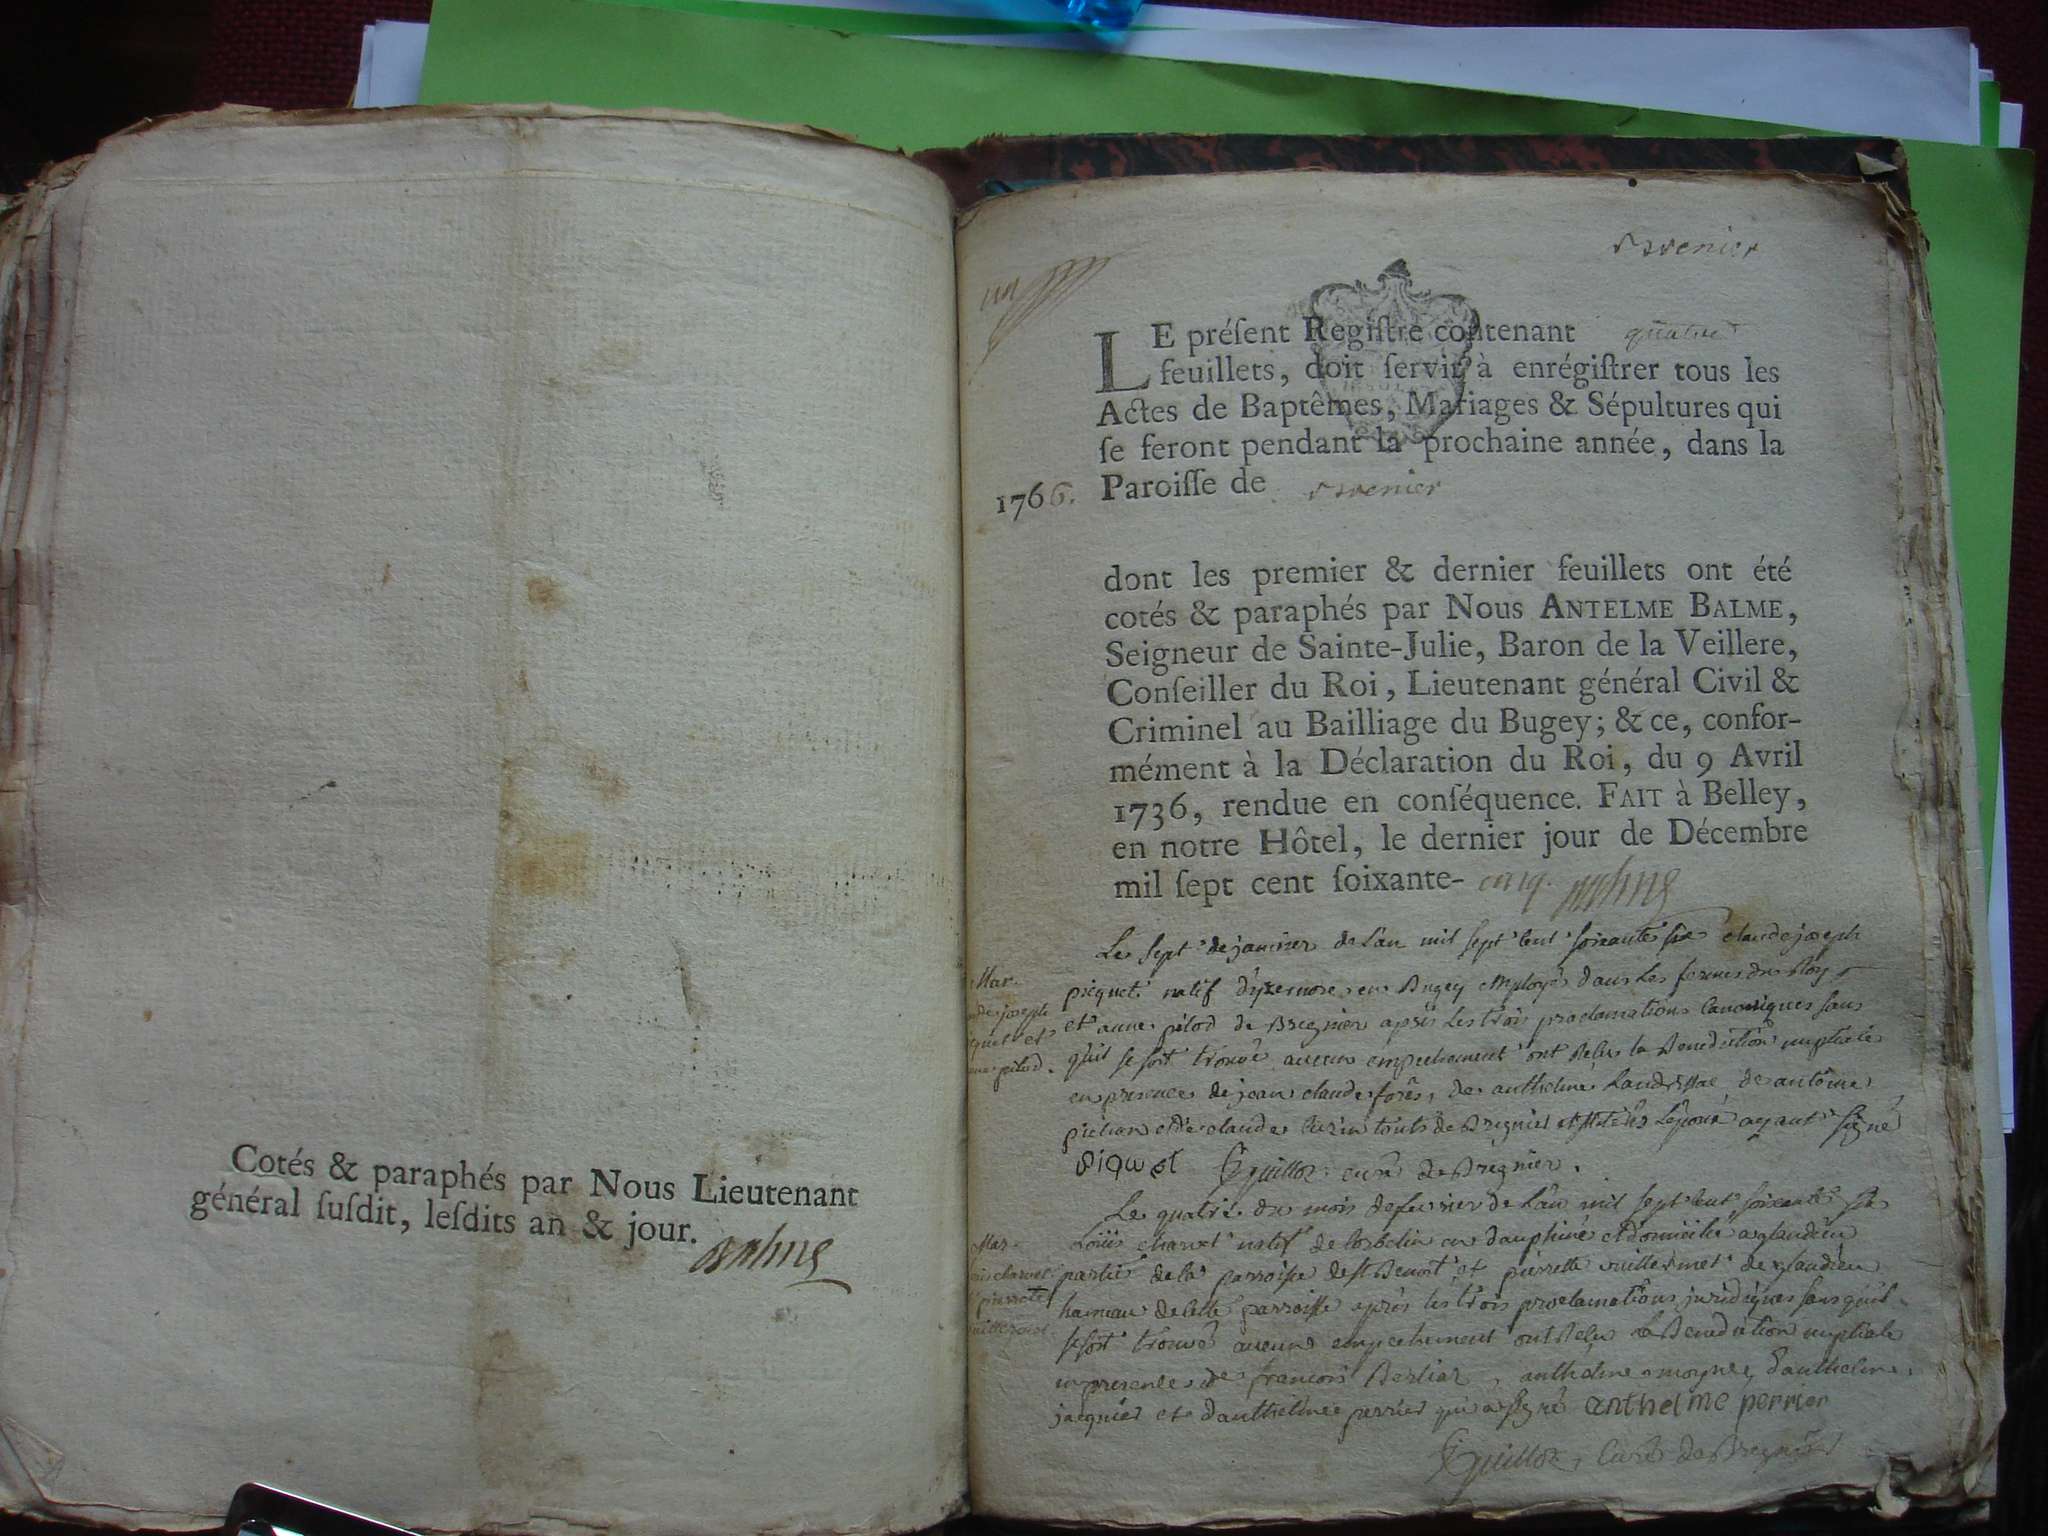 Cotés & paraphés par Nous Lieutenant
général ſuſdit, leſdits an & jour.
un
LE préſent Regiſtre contenant quatre
feuillets, doit ſervir à enrégiſtrer tous les
Actes de Baptêmes, Mariages & Sépultures qui
ſe feront pendant la prochaine année, dans la
1766. Paroiſſe de
dont les premier & dernier feuillets ont été
cotés & paraphés par Nous ANTELME BALME,
Seigneur de Sainte-Julie, Baron de la Veillere,
Conſeiller du Roi, Lieutenant général Civil &
Criminel au Bailliage du Bugey; & ce, confor-
mément à la Déclaration du Roi, du 9 Avril
1736, rendue en conſéquence. FAIT à Belley,
en notre Hôtel, le dernier jour de Décembre
mil ſept cent ſoixante- cinq. Balme
Le sept de janvier de l'an mil sept cent soixante six claude joseph
piequet natif d'yzernore en Bugey employé dans les fermes du Roy
et anne pilod de Bregnier après les trois proclamations canoniques sans
qu'il se soit trouvé aucun empechement ont Recu la Benediction nuptiale
en presence de jean claude forêt, de anthelme de antoine
pichon et de claude touts de Bregnier et l'epoux ayant signé
piquet Guilloz curé de Bregnier.
Mar.
joseph
quet et
pilod.
Le quatre du mois de fevrier de l'an mil sept cent soixante six
Loüis charvet natif de Corbelin en dauphiné et domicilié a glandieu
partie de la parroisse de st Benoit et pierrette vuillermet de glandieu
hameau de cette parroisse après les trois proclamations juridiques sans qu'il
se soit trouvé aucun empechement ont Recu la Benediction nuptiale
en presence de francois Berliaz, anthelme moyne, d'anthelme
jacquier et d'anthelme perrier qui a signé anthelme perrier
Guilloz, Curé de Bregnier
Mar.
charvet
pierrete